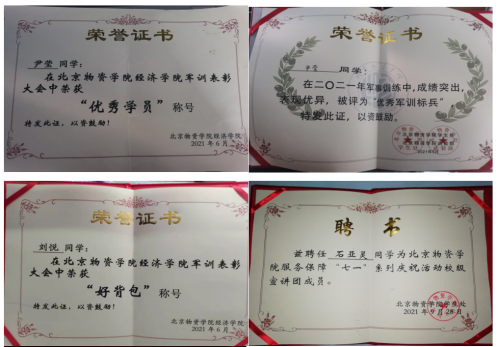 荣誉证书
尹莹 同学：
在北京物资学院经济学院军训表彰
大会中荣获
“优秀学员”称号
特发此证，以资鼓励！
北京物资学院经济学院
2021年6月
荣誉证书
同学：
在二〇二一年军事训练中，成绩突出，
表现优异，被评为“优秀军训标兵”，
特发此证，以资鼓励。
荣誉证书
刘悦 同学：
在北京物资学院经济学院军训表彰
大会中荣获
“好背包”称号
特发此证，以资鼓励！
北京物资学院经济学院
2021年6月
聘书
兹聘任 石亚灵 同学为北京物资学
院服务保障“七一”系列庆祝活动校级
宣讲团成员。
北京物资学院学生处
2021年9月28日